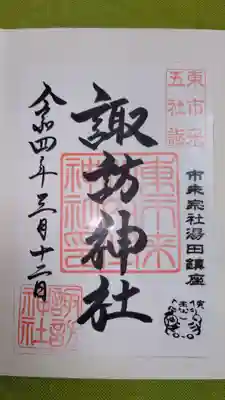 東市来
五社詣
市来宗社湯田鎮座
諏訪神社
東市来
神社印
令和四年三月十二日
諏訪
神社